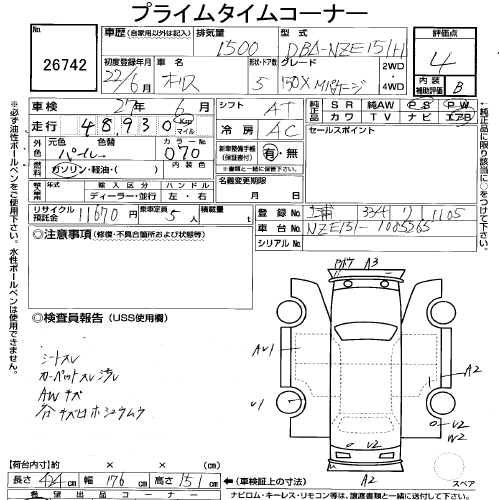 プライムタイムコーナー
26742
車歴 (自家用以外は記入)
排気量 1500
型式 DBA-NZE151H
評価点 4
初度登録年月 22/6月
車名
形状・ドア数 5
グレード 150X Mパッケージ
2WD
4WD
内装補助評価 B
車検 27年 6月
シフト AT
純正品 SR 純AW PS PW
カワ TV ナビ エアB
走行 48,930 Km マイル
冷房 AC
セールスポイント
外色 元色 パール 色替
カラーNo 070
新車整備手帳(保証書付) 有・無
※書類と一緒に保管下さい
燃料 ガソリン・軽油・( )
内装色
名義変更期限
月 日
輸入車 年式 輸入区分 ハンドル
ディーラー・並行 左・右
リサイクル預託金 11670円
乗車定員 5人
積載量 t
登録No 334 1105
車台No NZE151-1005265
シリアルNo
◎注意事項 (修復・不具合箇所および状態等)
◎検査員報告 (USS使用欄)
シートスレ
カーペットスレ汚レ
AWキズ
A3
AU1
A2
U1
U2
W2
U2
A2
スペア
【荷台内寸】約 × × (cm)
長さ 424cm 幅 176cm 高さ 151cm
◀(車検証上の寸法)
希望出品コーナー
ナビロム・キーレス・リモコン等は、譲渡書類と一緒に送付して下さい。
※必ず油性ボールペンをご使用下さい。水性ボールペンは使用できません。